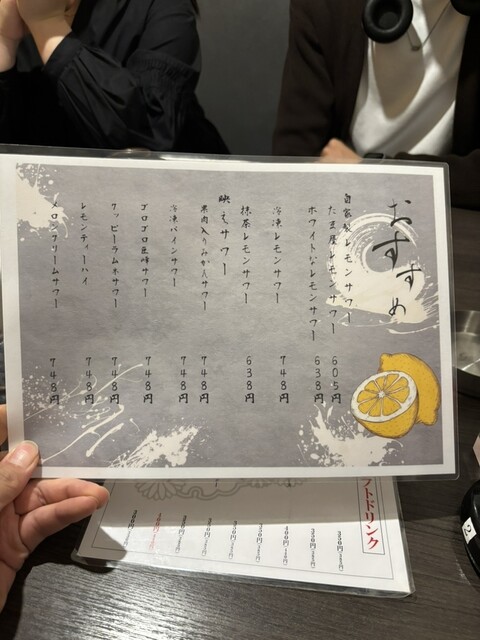 おすすめ
自家製レモンサワー 605円
た豆屋レモンサワー
ホワイトなレモンサワー 638円
冷凍レモンサワー 748円
抹茶レモンサワー 638円
映えサワー
果肉入りみかんサワー 748円
冷凍パインサワー 748円
ゴロゴロ巨峰サワー 748円
ハッピーラムネサワー 748円
レモンティーハイ 748円
メロンクリームサワー 748円
フトドリンク